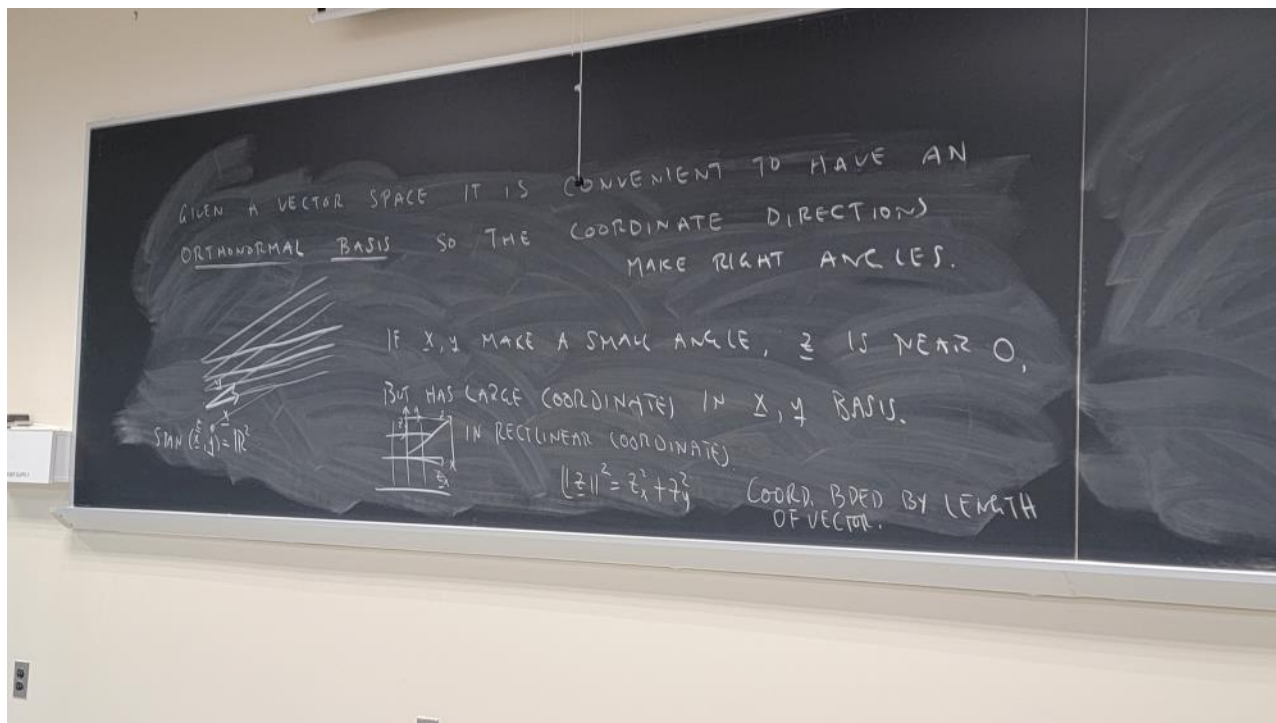 GIVEN A VECTOR SPACE IT IS CONVENIENT TO HAVE AN
ORTHONORMAL BASIS SO THE COORDINATE DIRECTIONS
MAKE RIGHT ANGLES.
IF x, y MAKE A SMALL ANGLE, z IS NEAR 0,
BUT HAS LARGE COORDINATES IN x, y BASIS.
SPAN (x, y) = ℝ²
IN RECTLINEAR COORDINATES
‖z‖² = z_x² + z_y²
COORD. BDED BY LENGTH
OF VECTOR.